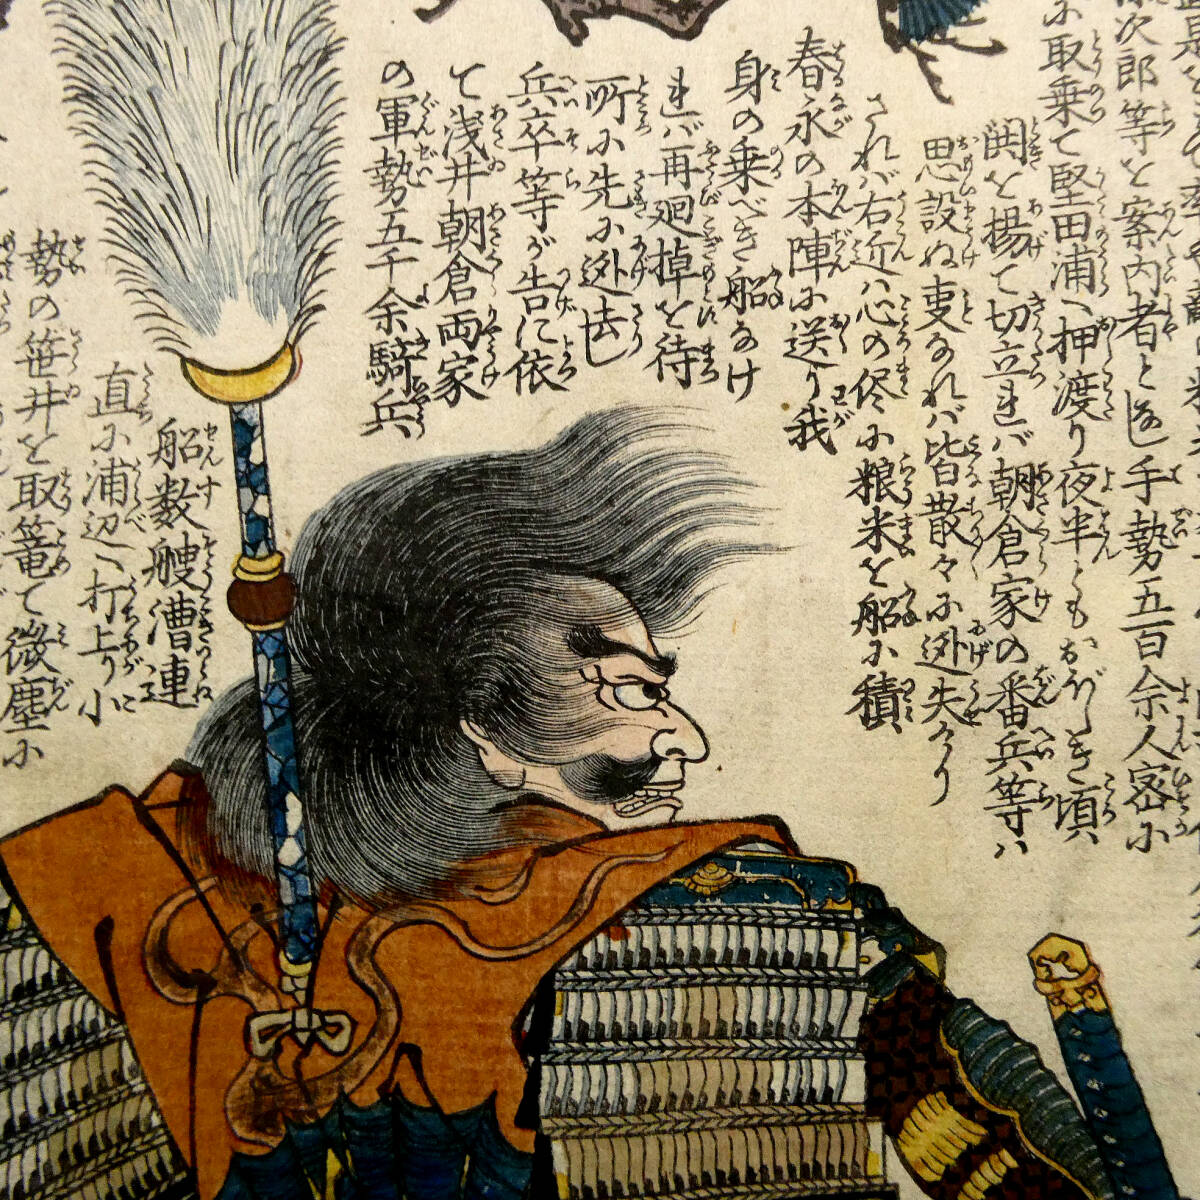 次郎等を案内者となし手勢五百余人密に
取乗て堅田浦へ押渡り夜半ともおぼしき頃
鬨を揚て切立れば朝倉家の番兵等は
思設ぬ事なれば皆散々に迯失けり
されば右近は心の侭に粮米を船に積
春永の本陣に送り我
身の乗べき船なけ
れば再廻棹を待
所に先に迯去し
兵卒等が告に依
て浅井朝倉両家
の軍勢五千余騎兵
船数艘漕連
直に浦辺へ打上り小
勢の笹井を取篭て微塵に